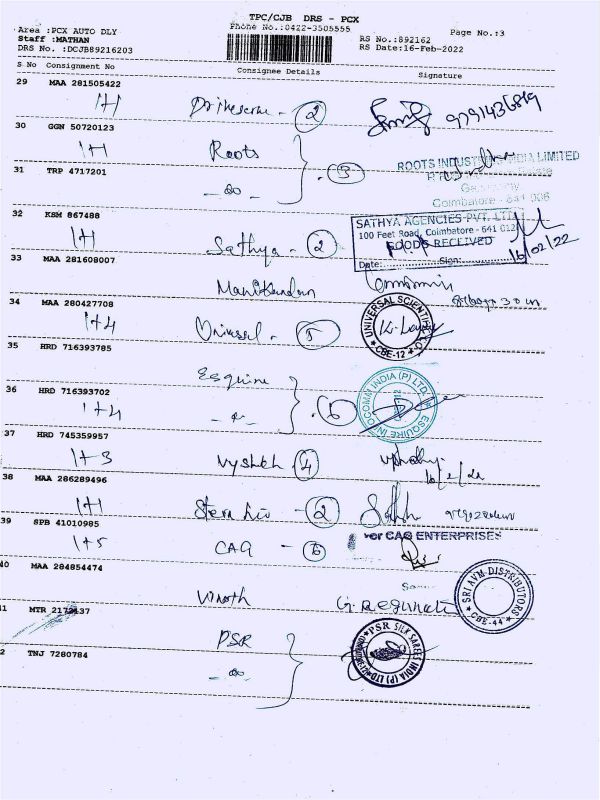 TPC/CJB DRS - PCX
Area :PCX AUTO DLY
Phone No.:0422-3505555
Page No.:3
Staff :MATHAN
RS No.:892162
DRS No. :DCJB89216203
RS Date:16-Feb-2022
S No Consignment No Consignee Details Signature
29 MAA 281505422
1+1 2
30 GGN 50720123
1+1 Roots 3
ROOTS INDUSTRIES INDIA LIMITED
31 TRP 4717201
- do -
Coimbatore - 641 006
32 KSM 867488
SATHYA AGENCIES PVT. LTD
100 Feet Road, Coimbatore - 641 012
1+1 Sathya - 2
GOODS RECEIVED
Date:............Sign:............
16/02/22
33 MAA 281608007
Manikandan
34 MAA 280427708
1+4 Universal - 5
UNIVERSAL SCIENTIFIC
CBE-12
35 HRD 716393785
Esquire
36 HRD 716393702
1+4 6
ESQUIRE INDCOMM INDIA (P) LTD
37 HRD 745359957
1+3 Vyshkh 4
38 MAA 286289496
1+1 2
39 SPB 41010985
For CAG ENTERPRISES
1+5 CAG - 6
40 MAA 284854474
Vinoth
SRI AVM DISTRIBUTORS
CBE-44
41 MTR 2172437
PSR
PSR SILK SAREES INDIA (P) LTD
42 TNJ 7280784
- do -